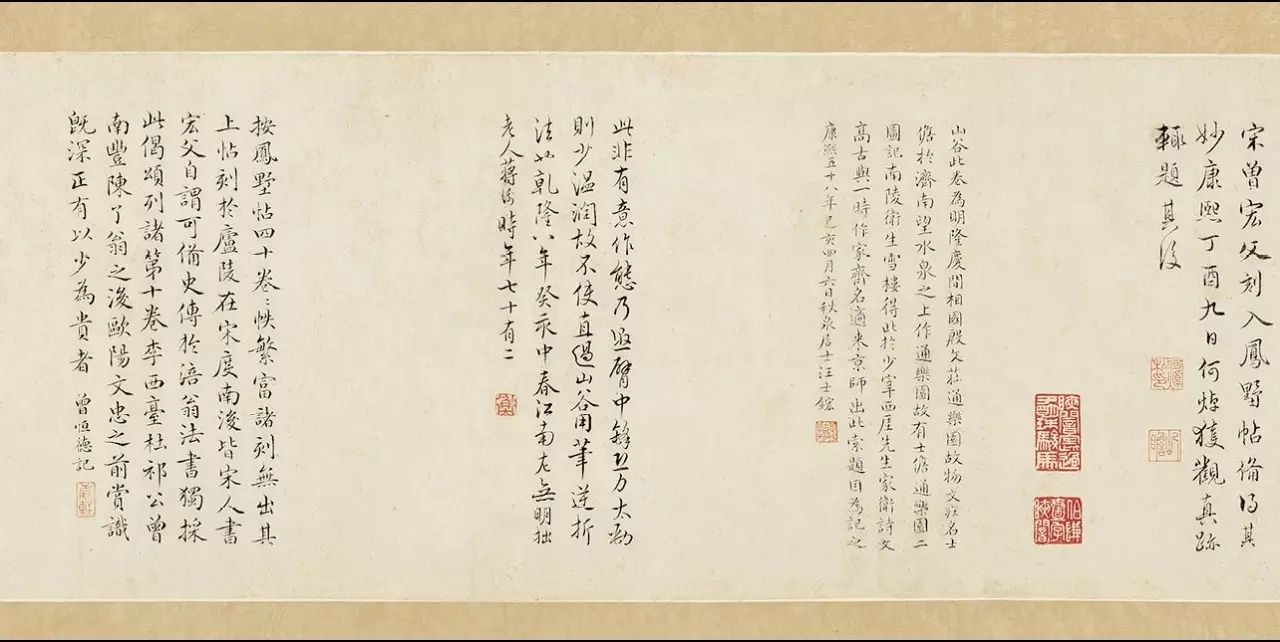 宋曾宏父刻入鳳墅帖備得其
妙康熙丁酉九日何焯獲觀真跡
輒題其後
山谷此卷為明隆慶間相國殷文莊通樂園故物文莊名士
儋於濟南望水泉之上作通樂園故有士儋通樂園二
圖記南陵衛生雪樓得此於少宰西厓先生家衛詩文
高古與一時作家齊名適來京師出此索題因為記之
康熙五十八年己亥四月六日秋泉居士汪士鋐
此非有意作態乃懸臂中鋒然万大勁
則少溫潤故不使直過山谷用筆逆折
法也乾隆八年癸亥中春江南老無明拙
老人蔣衡時年七十有二
按鳳墅帖四十卷〻帙繁富諸刻無出其
上帖刻於廬陵在宋度南後皆宋人書
宏父自謂可備史傳於涪翁法書獨採
此偈頌列諸第十卷李西臺杜祁公曾
南豐陳了翁之後歐陽文忠之前賞識
既深正有以少為貴者 曾恒德記